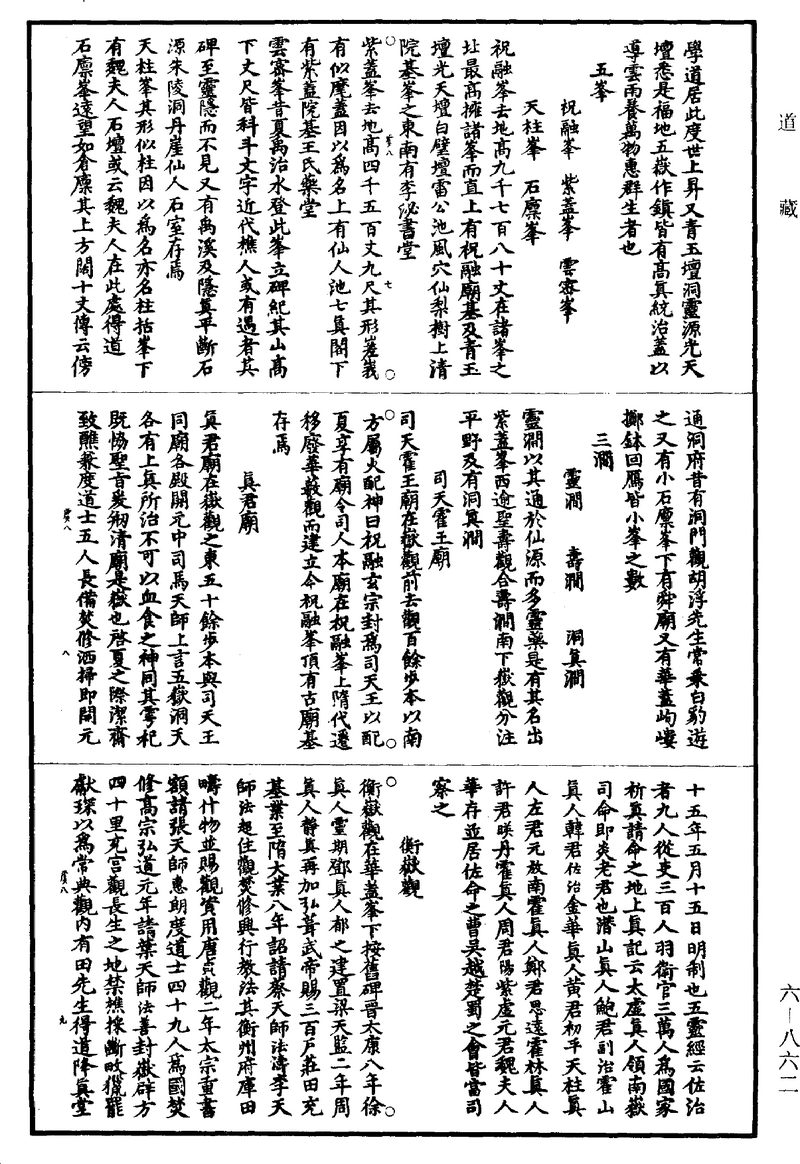 道藏
學道居此度世上昇又青玉壇洞靈源光天
壇悉是福地五嶽作鎮皆有高真統治蓋以
導雲雨養萬物惠群生者也
五峯
祝融峯　紫蓋峯　雲密峯
天柱峯　石廩峯
祝融峯去地高九千七百八十丈在諸峯之
址最高擁諸峯而直上有祝融廟基及青玉
壇光天壇白璧壇雷公池風穴仙梨樹上清
院基峯之東南有李泌書堂
紫蓋峯去地高四千五百丈九尺其形嵳峩
有似麾蓋因以爲名上有仙人池七真閣下
有紫蓋院基王氏藥堂
雲密峯昔夏禹治水登此峯立碑紀其山高
下丈尺皆科斗文字近代樵人或有遇者其
碑至靈隱而不見又有禹溪及隱真平斷石
源朱陵洞丹崖仙人石室存焉
天柱峯其形似柱因以爲名亦名柱括峯下
有魏夫人石壇或云魏夫人在此處得道
石廩峯遠望如倉廩其上方闊十丈傳云傍
通洞府昔有洞門觀胡浮先生常乘白豹遊
之又有小石廩峯下有舜廟又有華蓋岣嶁
擲鉢回鴈皆小峯之數
三澗
靈澗　壽澗　洞真澗
靈澗以其通於仙源而多靈藥是有其名出
紫蓋峯西逾聖壽觀合壽澗南下嶽觀分注
平野及有洞真澗
司天霍王廟
司天霍王廟在嶽觀前去觀百餘步本以南
方屬火配神曰祝融玄宗封爲司天王以配
夏享有廟令司人本廟在祝融峯上隋代遷
移廢華藪觀而建立今祝融峯頂有古廟基
存焉
真君廟
真君廟在嶽觀之東五十餘步本與司天王
同廟各殿開元中司馬天師上言五嶽洞天
各有上真所治不可以血食之神同其饗祀
既協聖旨爰剏清廟是嶽也啓夏之際潔齋
致醮兼度道士五人長備焚修洒掃即開元
十五年五月十五日明制也五靈經云佐治
者九人從吏三百人羽衞官三萬人爲國家
祈真請命之地上真記云太虛真人領南嶽
司命即炎老君也潛山真人鮑君副治霍山
真人韓君佐治金華真人黄君初平天柱真
人左君元放南霍真人鄭君思遠霍林真人
許君映丹霍真人周君陽紫虛元君魏夫人
華存並居佐命之曹吳越楚蜀之會皆當司
察之
衡嶽觀
衡嶽觀在華蓋峯下按舊碑晉太康八年徐
真人靈期鄧真人郁之建置梁天監二年周
真人靜真再加弘葺武帝賜三百戶莊田充
基業至隋大業八年詔請蔡天師法濤李天
師法超住觀焚修興行教法其衡州府庫田
疇什物並賜觀資用唐貞觀二年太宗重書
額請張天師惠朗度道士四十九人爲國焚
修高宗弘道元年請葉天師法善封嶽辟方
四十里充宫觀長生之地禁樵採斷畋獵罷
獻琛以爲常典觀内有田先生得道降真堂
六－八六二